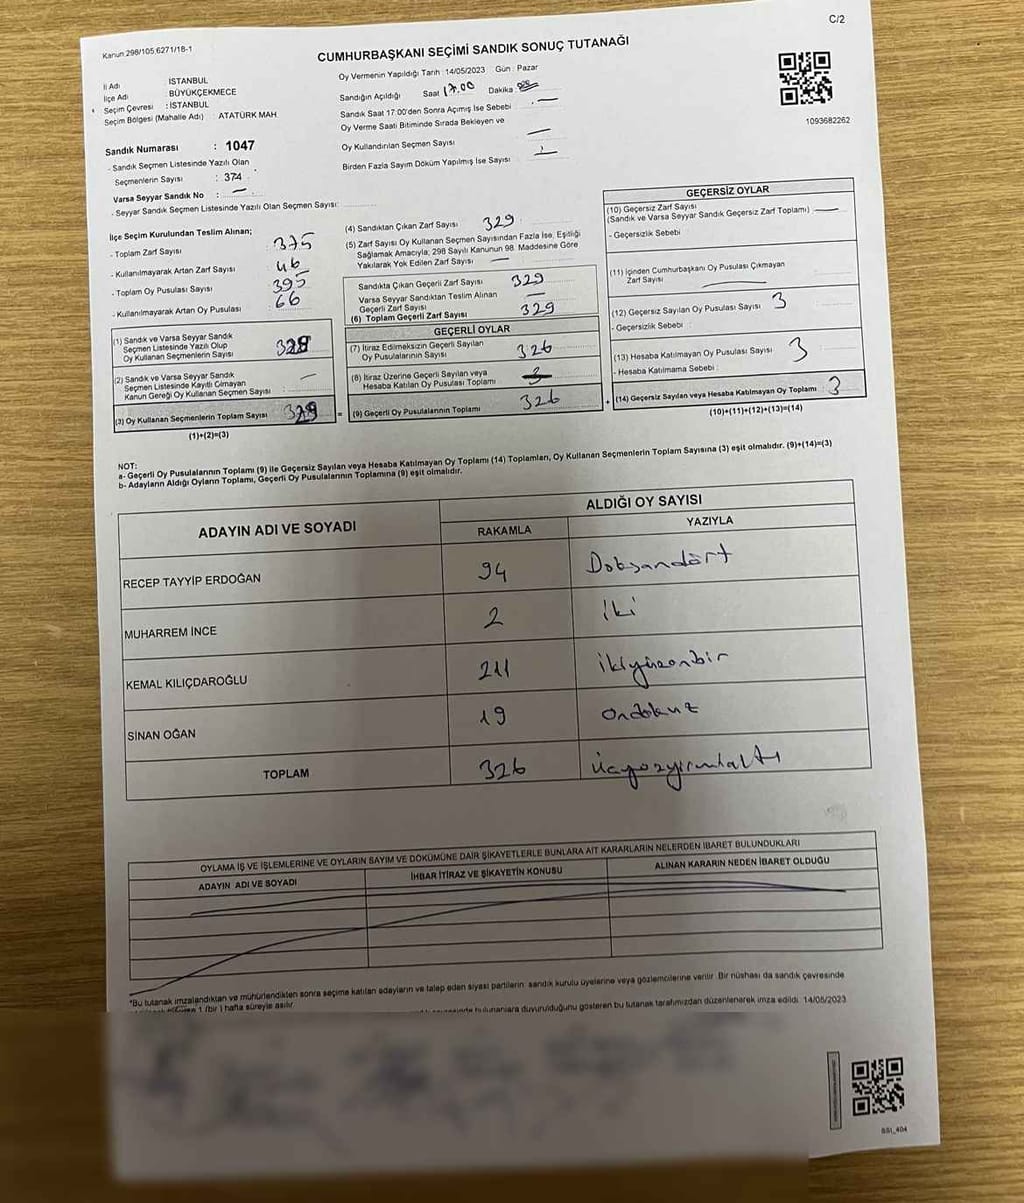 C/2
Kanun.298/105,6271/18-1
CUMHURBAŞKANI SEÇİMİ SANDIK SONUÇ TUTANAĞI
İl Adı İSTANBUL
İlçe Adı BÜYÜKÇEKMECE
Seçim Çevresi : İSTANBUL
Seçim Bölgesi (Mahalle Adı) ATATÜRK MAH.
Oy Vermenin Yapıldığı Tarih : 14/05/2023 Gün : Pazar
Sandığın Açıldığı Saat 17.00 Dakika
Sandık Saat 17:00'den Sonra Açımış İse Sebebi : —
Oy Verme Saati Bitiminde Sırada Bekleyen ve
Oy Kullandırılan Seçmen Sayısı —
Birden Fazla Sayım Döküm Yapılmış İse Sayısı :
1093682262
Sandık Numarası : 1047
- Sandık Seçmen Listesinde Yazılı Olan
Seçmenlerin Sayısı : 374
Varsa Seyyar Sandık No : —
- Seyyar Sandık Seçmen Listesinde Yazılı Olan Seçmen Sayısı:
İlçe Seçim Kurulundan Teslim Alınan;
- Toplam Zarf Sayısı : 375
- Kullanılmayarak Artan Zarf Sayısı : 46
- Toplam Oy Pusulası Sayısı : 395
- Kullanılmayarak Artan Oy Pusulası : 66
(1) Sandık ve Varsa Seyyar Sandık
Seçmen Listesinde Yazılı Olup
Oy Kullanan Seçmenlerin Sayısı : 329
(2) Sandık ve Varsa Seyyar Sandık
Seçmen Listesinde Kayıtlı Olmayan
Kanun Gereği Oy Kullanan Seçmen Sayısı : —
(3) Oy Kullanan Seçmenlerin Toplam Sayısı : 329
(1)+(2)=(3)
(4) Sandıktan Çıkan Zarf Sayısı : 329
(5) Zarf Sayısı Oy Kullanan Seçmen Sayısından Fazla İse, Eşitliği
Sağlamak Amacıyla; 298 Sayılı Kanunun 98. Maddesine Göre
Yakılarak Yok Edilen Zarf Sayısı : —
Sandıkta Çıkan Geçerli Zarf Sayısı : 329
Varsa Seyyar Sandıktan Teslim Alınan
Geçerli Zarf Sayısı : —
(6) Toplam Geçerli Zarf Sayısı : 329
GEÇERLİ OYLAR
(7) İtiraz Edilmeksizin Geçerli Sayılan
Oy Pusulalarının Sayısı : 326
(8) İtiraz Üzerine Geçerli Sayılan veya
Hesaba Katılan Oy Pusulası Toplamı :
= (9) Geçerli Oy Pusulalarının Toplamı : 326
GEÇERSİZ OYLAR
(10) Geçersiz Zarf Sayısı
(Sandık ve Varsa Seyyar Sandık Geçersiz Zarf Toplamı) : —
- Geçersizlik Sebebi :
(11) İçinden Cumhurbaşkanı Oy Pusulası Çıkmayan
Zarf Sayısı : —
(12) Geçersiz Sayılan Oy Pusulası Sayısı : 3
- Geçersizlik Sebebi :
(13) Hesaba Katılmayan Oy Pusulası Sayısı : 3
- Hesaba Katılmama Sebebi :
+ (14) Geçersiz Sayılan veya Hesaba Katılmayan Oy Toplamı : 3
(10)+(11)+(12)+(13)=(14)
NOT:
a- Geçerli Oy Pusulalarının Toplamı (9) ile Geçersiz Sayılan veya Hesaba Katılmayan Oy Toplamı (14) Toplamları, Oy Kullanan Seçmenlerin Toplam Sayısına (3) eşit olmalıdır. (9)+(14)=(3)
b- Adayların Aldığı Oyların Toplamı, Geçerli Oy Pusulalarının Toplamına (9) eşit olmalıdır.
ADAYIN ADI VE SOYADI ALDIĞI OY SAYISI
RAKAMLA YAZIYLA
RECEP TAYYİP ERDOĞAN 94 Doksandört
MUHARREM İNCE 2 İki
KEMAL KILIÇDAROĞLU 211 ikiyüzonbir
SİNAN OĞAN 19 ondokuz
TOPLAM 326 üçyüzyirmialtı
OYLAMA İŞ VE İŞLEMLERİNE VE OYLARIN SAYIM VE DÖKÜMÜNE DAİR ŞİKAYETLERLE BUNLARA AİT KARARLARIN NELERDEN İBARET BULUNDUKLARI
ADAYIN ADI VE SOYADI İHBAR İTİRAZ VE ŞİKAYETİN KONUSU ALINAN KARARIN NEDEN İBARET OLDUĞU
*Bu tutanak imzalandıktan ve mühürlendikten sonra seçime katılan adayların ve talep eden siyasi partilerin sandık kurulu üyelerine veya gözlemcilerine verilir. Bir nüshası da sandık çevresinde
1 (bir) hafta süreyle asılır.
bulunanlara duyurulduğunu gösteren bu tutanak tarafımızdan düzenlenerek imza edildi. 14/05/2023
SS1_404